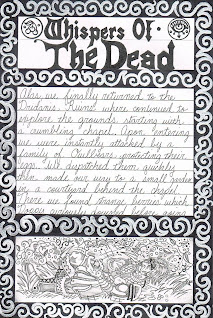 Whispers Of
The Dead
Alas we finally returned to the
Ruins where continued to
explore the grounds starting with
a crumbling chapel. Upon entering
we were instantly attacked by a
family of Owlbears protecting their
We dispatched them quickly
then made our way to a small garden
in a courtyard behind the chapel.
There we found strange berries which